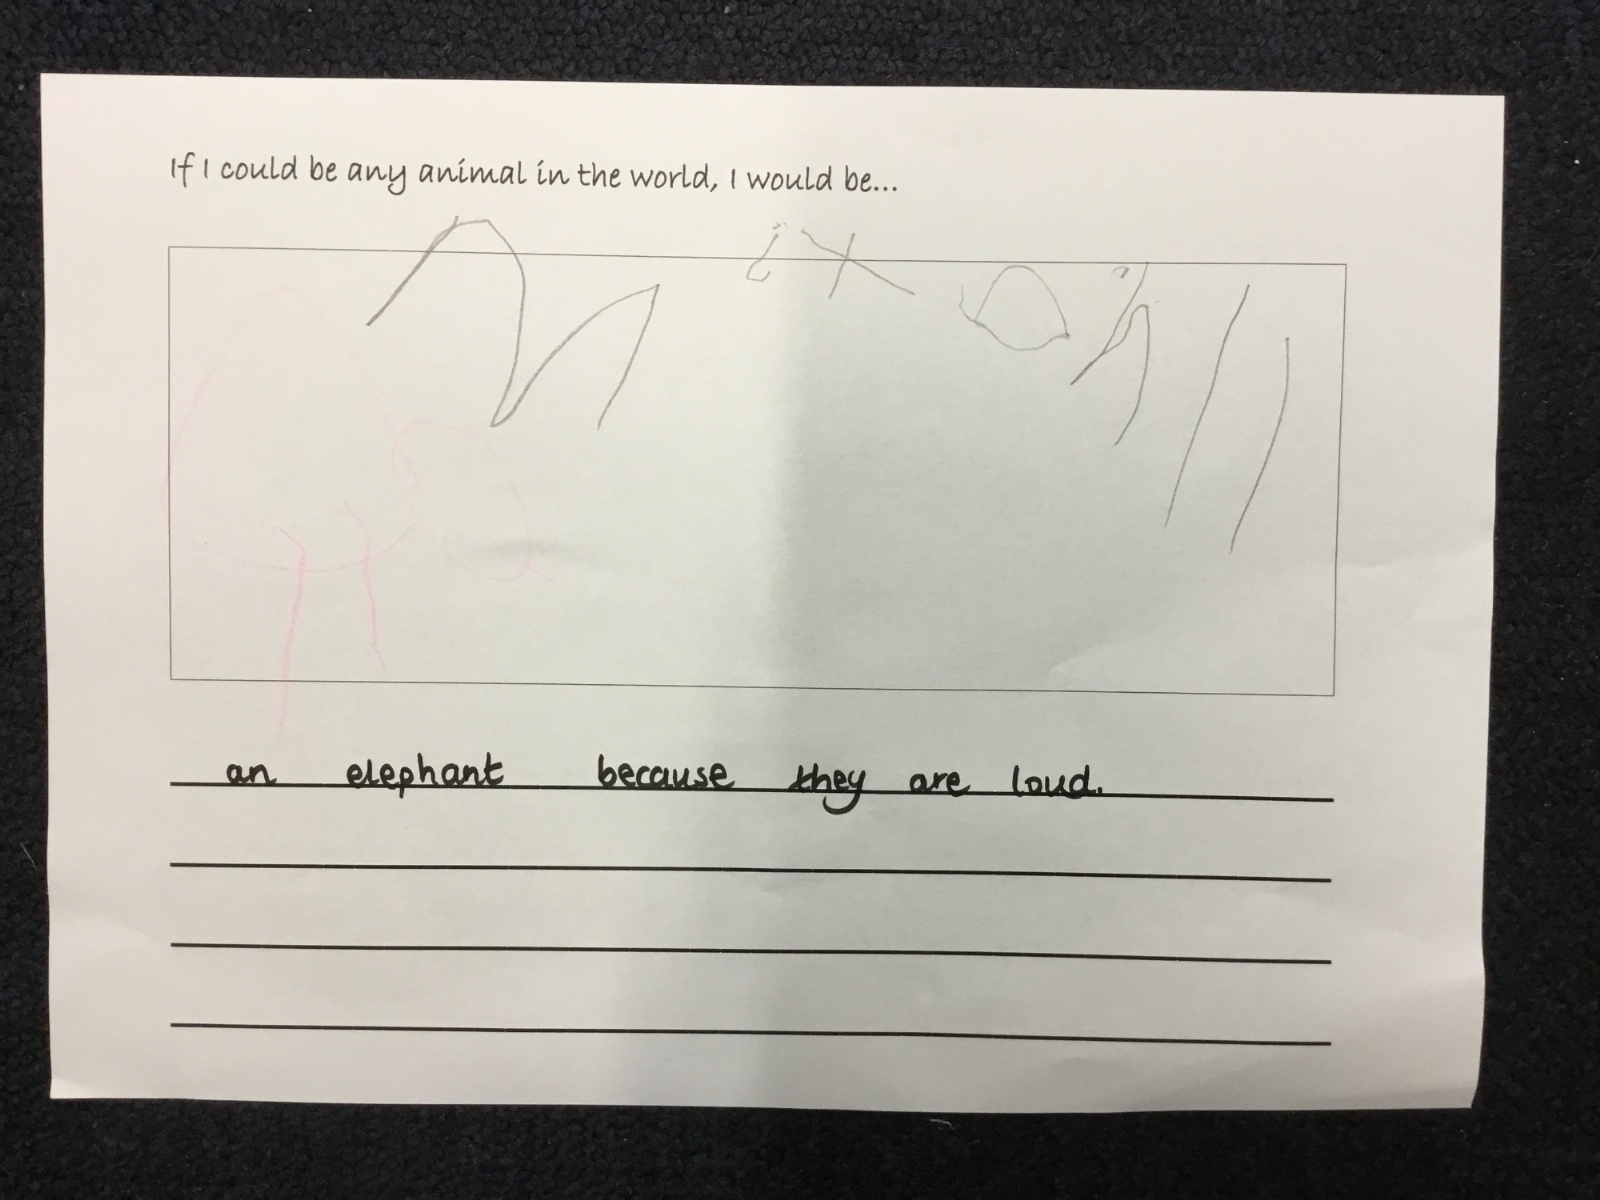 If I could be any animal in the world, I would be...
an elephant because they are loud.